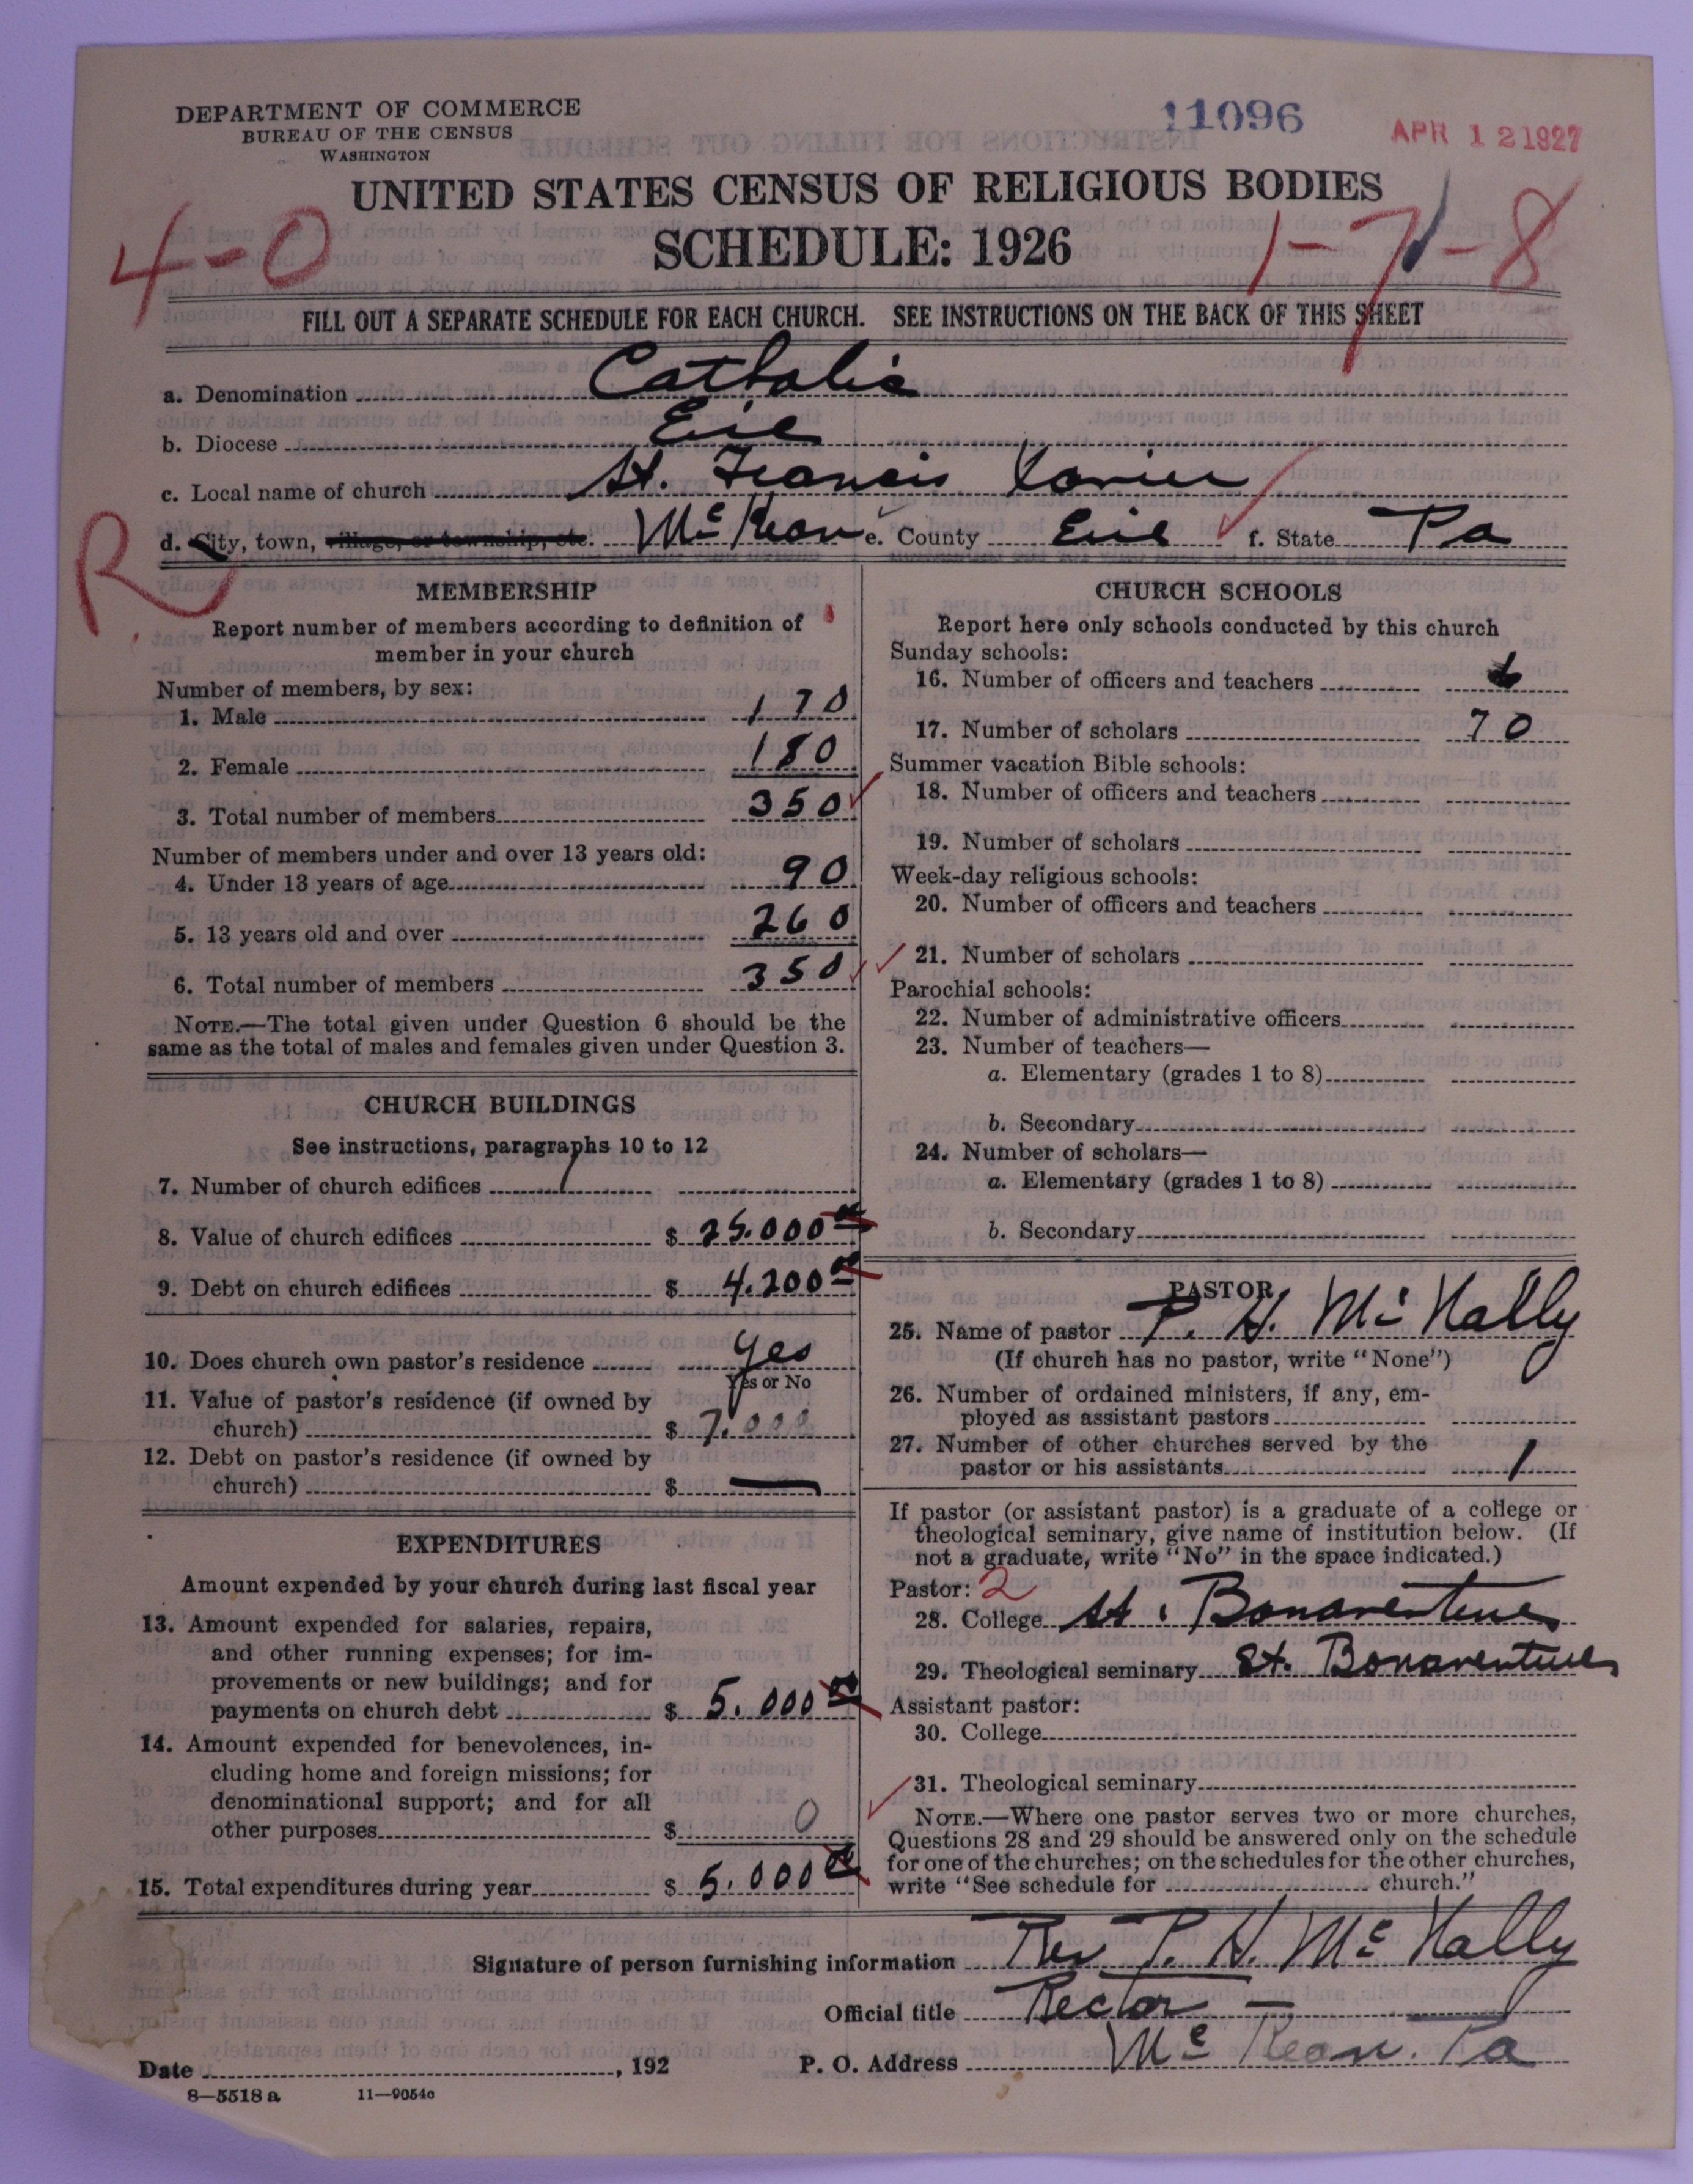 DEPARTMENT OF COMMERCE
BUREAU OF THE CENSUS
WASHINGTON
11096
APR 12 1927
UNITED STATES CENSUS OF RELIGIOUS BODIES
SCHEDULE: 1926
4-0
1-7-8
FILL OUT A SEPARATE SCHEDULE FOR EACH CHURCH. SEE INSTRUCTIONS ON THE BACK OF THIS SHEET
a. Denomination Catholic
b. Diocese Erie
c. Local name of church St. Francis Xavier
d. City, town, village, or township, etc. McKean e. County Erie f. State Pa
R
MEMBERSHIP
Report number of members according to definition of
member in your church
Number of members, by sex:
1. Male 170
2. Female 180
3. Total number of members 350
Number of members under and over 13 years old:
4. Under 13 years of age 90
5. 13 years old and over 260
6. Total number of members 350
NOTE.—The total given under Question 6 should be the
same as the total of males and females given under Question 3.
CHURCH BUILDINGS
See instructions, paragraphs 10 to 12
7. Number of church edifices 1
8. Value of church edifices $ 25.000 00
9. Debt on church edifices $ 4.200 00
10. Does church own pastor's residence yes
Yes or No
11. Value of pastor's residence (if owned by
church) $ 7.000
12. Debt on pastor's residence (if owned by
church) $ —
EXPENDITURES
Amount expended by your church during last fiscal year
13. Amount expended for salaries, repairs,
and other running expenses; for im-
provements or new buildings; and for
payments on church debt $ 5.000 00
14. Amount expended for benevolences, in-
cluding home and foreign missions; for
denominational support; and for all
other purposes $ 0
15. Total expenditures during year $ 5.000 00
CHURCH SCHOOLS
Report here only schools conducted by this church
Sunday schools:
16. Number of officers and teachers
17. Number of scholars 70
Summer vacation Bible schools:
18. Number of officers and teachers
19. Number of scholars
Week-day religious schools:
20. Number of officers and teachers
21. Number of scholars
Parochial schools:
22. Number of administrative officers
23. Number of teachers—
a. Elementary (grades 1 to 8)
b. Secondary
24. Number of scholars—
a. Elementary (grades 1 to 8)
b. Secondary
PASTOR
25. Name of pastor P. H. McNally
(If church has no pastor, write "None")
26. Number of ordained ministers, if any, em-
ployed as assistant pastors
27. Number of other churches served by the
pastor or his assistants 1
If pastor (or assistant pastor) is a graduate of a college or
theological seminary, give name of institution below. (If
not a graduate, write "No" in the space indicated.)
Pastor: 2
28. College St. Bonaventure
29. Theological seminary St. Bonaventure
Assistant pastor:
30. College
31. Theological seminary
NOTE.—Where one pastor serves two or more churches,
Questions 28 and 29 should be answered only on the schedule
for one of the churches; on the schedules for the other churches,
write "See schedule for church."
Signature of person furnishing information Rev P. H. McNally
Official title Rector —
Date , 192 P. O. Address McKean. Pa
8—5518 a 11—9054c